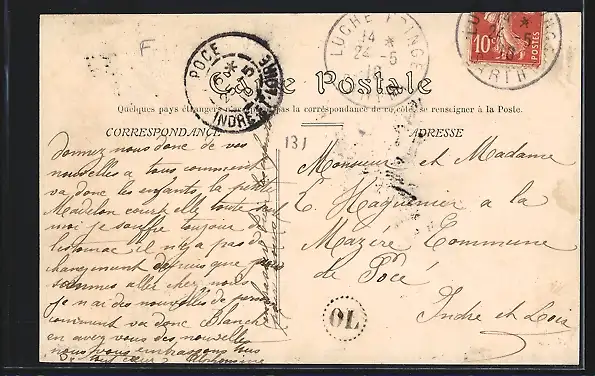 F
POCÉ
INDRE
LUCHÉ PRINGÉ
14 *
24 - 5
SARTHE
10
POSTES
e Postale
Quelques pays étrangers pas la correspondance de ce côté, se renseigner à la Poste.
CORRESPONDANCE
ADRESSE
131
Donnez nous donc de vos
nouvelles a tous comment
va donc les enfants la petite
Madelon court elle toute seul
moi je souffre toujour de
l'estomac il n'y a pas de
changement depuis que
sommes aller chez nous
je n'ai des nouvelles de
comment va donc Blanche
en avez vous des nouvelles
nous vous embrassons tous
tout cœur
Monsieur et Madame
E. Haguenier a la
Mazéré Commune
de Pocé
Indre et Loir
OL